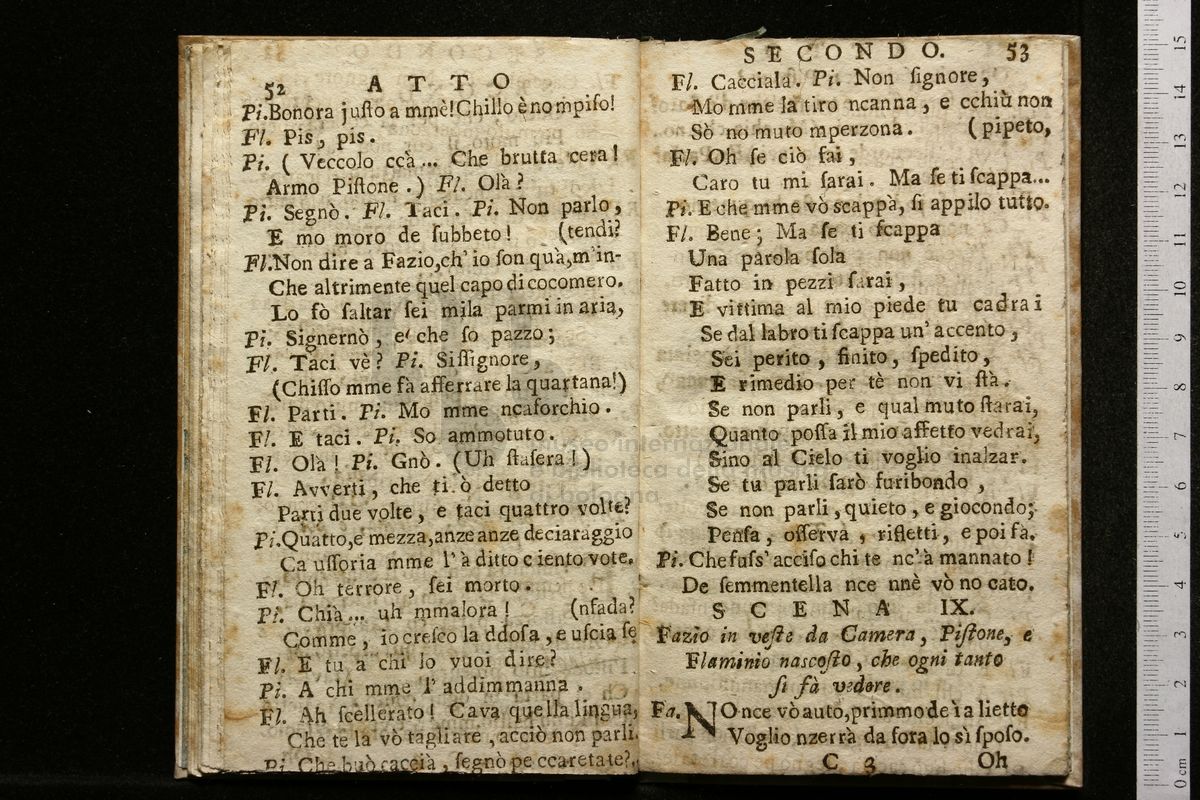 52 ATTO
Pi. Bonora juſto a mmè! Chillo è no mpiſo!
Fl. Pis, pis.
Pi. ( Veccolo ccà ... Che brutta cera!
Armo Piſtone.) Fl. Olà?
Pi. Segnò. Fl. Taci. Pi. Non parlo,
E mo moro de ſubbeto! (tendi?
Fl. Non dire a Fazio, ch' io ſon quà, m'in-
Che altrimente quel capo di cocomero.
Lo fò ſaltar ſei mila parmi in aria,
Pi. Signernò, e' che ſo pazzo;
Fl. Taci vè? Pi. Siſſignore,
(Chiſſo mme fà afferrare la quartana!)
Fl. Parti. Pi. Mo mme ncaforchio.
Fl. E taci. Pi. So ammotuto.
Fl. Olà! Pi. Gnò. (Uh ſtaſera!)
Fl. Avverti, che ti ò detto
Parti due volte, e taci quattro volte?
Pi. Quatto, e mezza, anze anze deciaraggio
Ca uſſoria mme l' à ditto ciento vote.
Fl. Oh terrore, ſei morto.
Pi. Chià ... uh mmalora! (nfada?
Comme, io creſco la ddoſa, e uſcia ſe
Fl. E tu a chi lo vuoi dire?
Pi. A chi mme l' addimmanna.
Fl. Ah ſcellerato! Cava quella lingua,
Che te la vò tagliare, acciò non parli.
Pi. Che buò caccià, ſegnò pe ccaretate?
SECONDO. 53
Fl. Cacciala. Pi. Non ſignore,
Mo mme la tiro ncanna, e cchiù non
Sò no muto mperzona. (pipeto,
Fl. Oh ſe ciò fai,
Caro tu mi ſarai. Ma ſe ti ſcappa...
Pi. E che mme vò scappà, ſi appilo tutto.
Fl. Bene; Ma ſe ti ſcappa
Una parola ſola
Fatto in pezzi ſarai,
E vittima al mio piede tu cadrai
Se dal labro ti ſcappa un' accento,
Sei perito, finito, ſpedito,
E rimedio per tè non vi ſtà.
Se non parli, e qual muto ſtarai,
Quanto poſſa il mio affetto vedrai,
Sino al Cielo ti voglio inalzar.
Se tu parli ſarò furibondo,
Se non parli, quieto, e giocondo;
Penſa, oſſerva, rifletti, e poi fà.
Pi. Che fuſs' acciſo chi te nc' à mannato!
De ſemmentella nce nnè vò no cato.
SCENA IX.
Fazio in veſte da Camera, Piſtone, e
Flaminio naſcoſto, che ogni tanto
ſi fà vedere.
Fa. NOnce vò auto, primmo de ì a lietto
Voglio nzerrà da fora lo sì ſpoſo.
C 3 Oh
museo internazionale
biblioteca della musica
di bologna